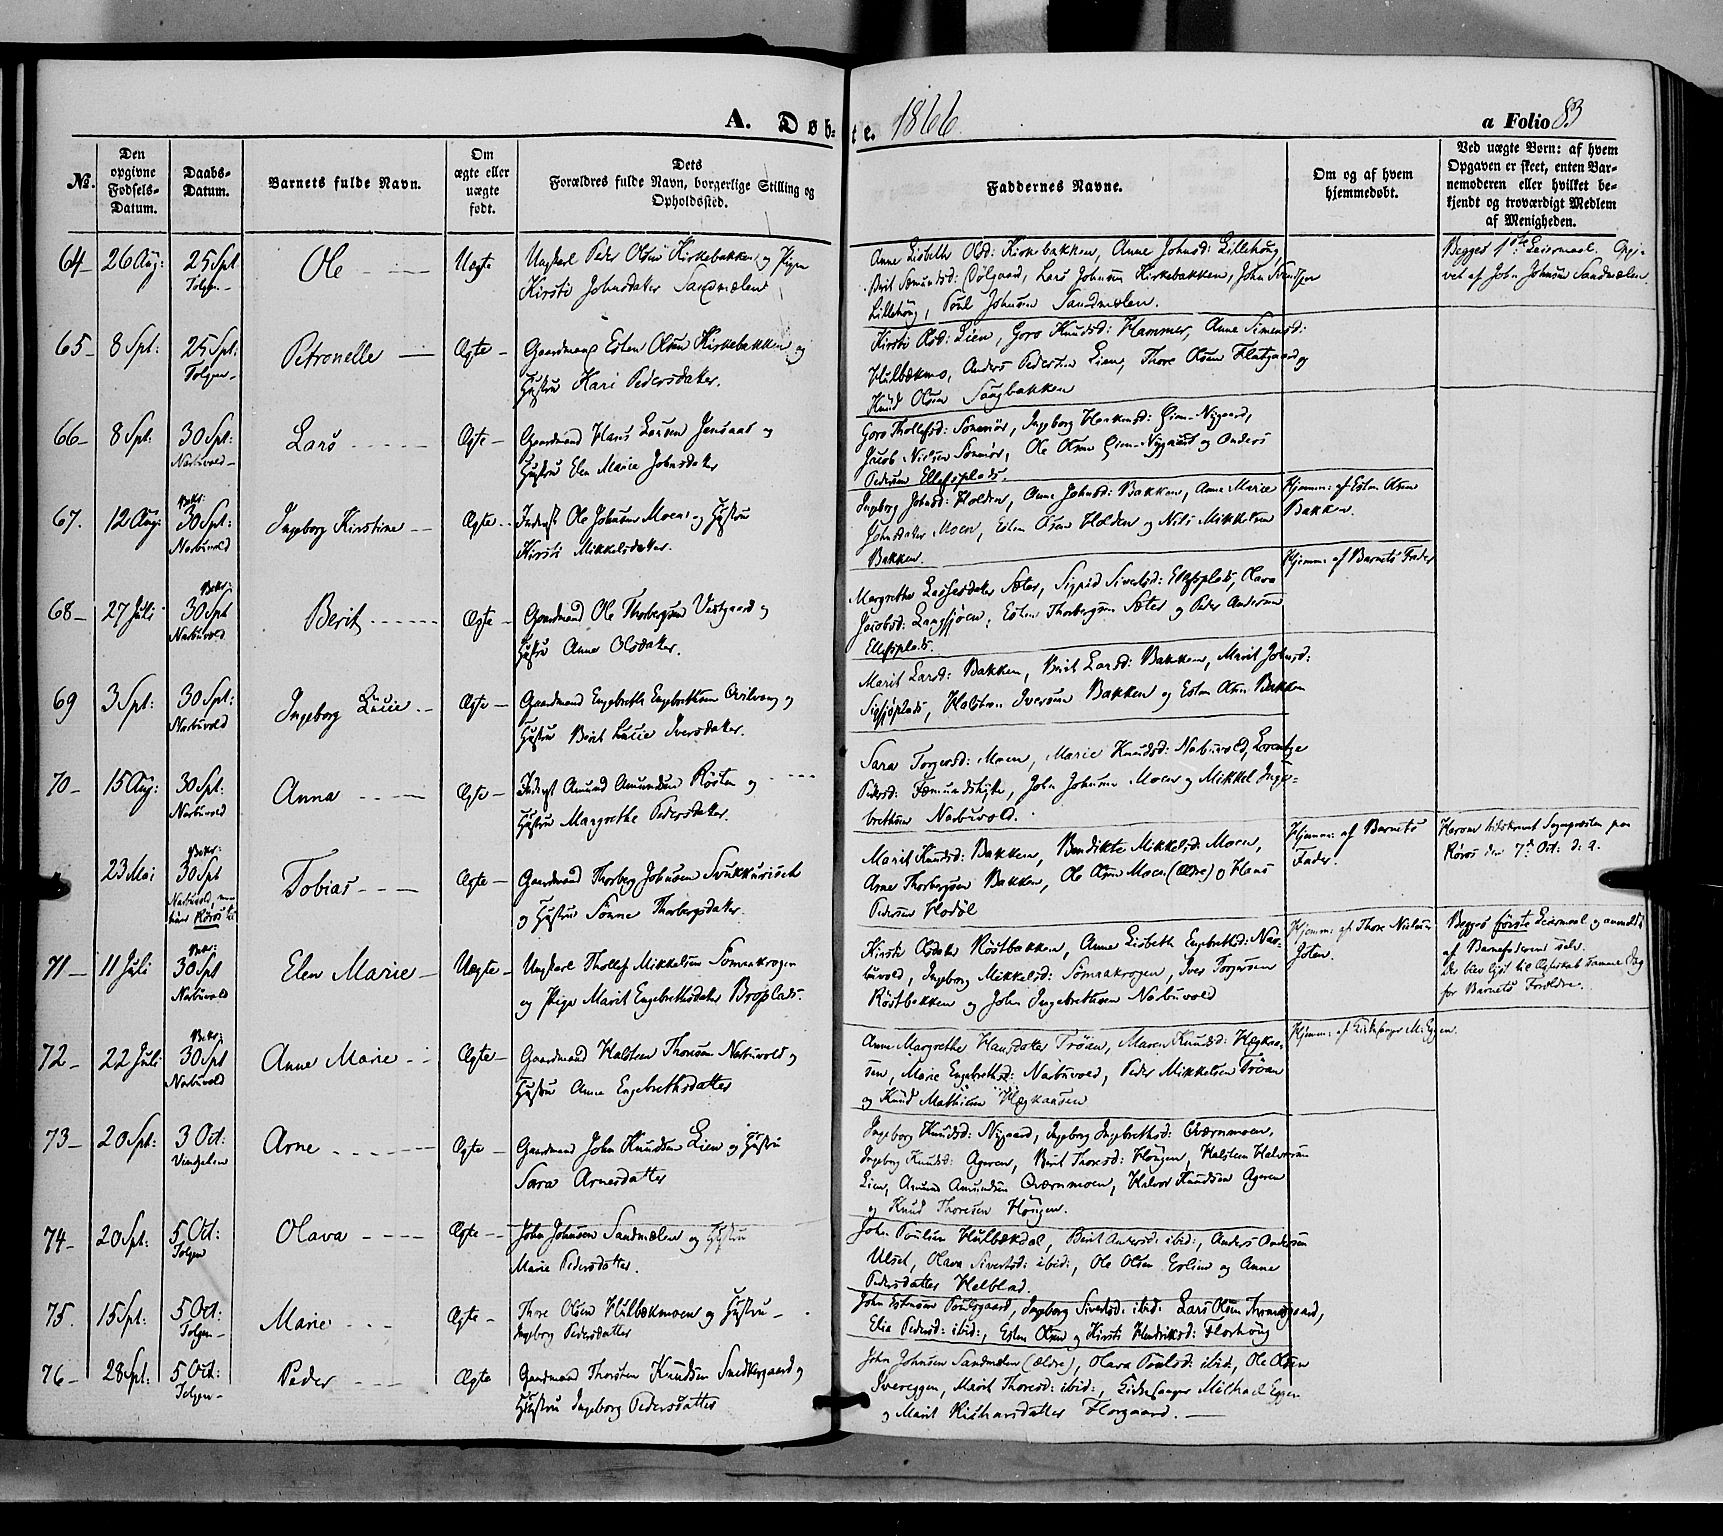 A. Døb=
te. 1866
a Folio 83
No.
Den opgivne Fødsels-Datum.
Daabs-Datum.
Barnets fulde Navn.
Om ægte eller uægte født.
Dets Forældres fulde Navn, borgerlige Stilling og Opholdssted.
Faddernes Navne.
Om og af hvem hjemmedøbt.
Ved uægte Børn: af hvem Opgaven er skeet, enten Barnemoderen eller hvilket bekjendt og troværdigt Medlem af Menigheden.
64 26 Aug: 25 Spt Tolgen Ole Uægte
Ungkarl Peder Olsen Kirkebakken og Pigen
Kirsti Johnsdater Sandmælen
Anne Lisbeth Olsd: Kirkebakken, Anne Johnsd: Lillehøug,
Berit Semundsd: Dølgaard, Lars Johnsen Kirkebakken, John
Lillehøug, Poul Johnsen Sandmælen.
Begges 1ste Leiermaal. Opgi-
vet af John Johnsen Sandmælen
65 8 Spt: 25 Spt: Tolgen Petronelle Ægte
Gaardmand Esten Olsen Kirkebakken og
Hustru Kari Pedersdater.
Kirsti Olsd: Lien, Goro Knudsd: Hammer, Anne Simensd:
Hulbækmo, Anders Pedersen Lien, Thore Olsen Flatgaard og
Knud Olsen Saugbakken
66 8 Spt: 30 Spt: Narbuvold Lars Ægte
Gaardmand Hans Larsen Jensaas og
Hustru Elen Marie Johnsdater
Goro Thollefsd: Sømmør, Ingeborg Haakensd: Eien-Nygaard,
Jacob Nielsen Sømmør, Ole Olsen Eien-Nygaard og Anders
Pedersen Ellefsplads.
67. 12 Aug: Bekr: 30 Spt: Narbuvold Ingeborg Kirstine Ægte
Inderst Ole Johnsen Moen og Hustru
Kirsti Mikkelsdater.
Ingeborg Johnsd: Holden, Anne Johnsd: Bakken, Anne Marie
Johnsdater Moen, Esten Olsen Holden og Nils Mikkelsen
Bakken.
Hjemm: af Esten Olsen
Bakken.
68 27 Juli Bekr: 30 Spt Narbuvold Berit Ægte
Gaardmand Ole Thorbergsen Vestgaard og
Hustru Anne Olsdater.
Margrethe Lassesdater Sæter, Sigrid Sivertsd: Ellefsplads, Olava
Jacobsd: Langsjøen, Esten Thorbergsen Sæter og Peder Andersen
Ellefsplads.
Hjemm: af Barnets Fader
69 3 Spt: 30 Spt: Narbuvold Ingeborg Lucie Ægte
Gaardmand Engebreth Engebrethsen Qvilvang og
Hustru Berit Lucie Iversdater.
Marit Larsd: Bakken, Berit Larsd: Bakken, Marit Johnsd:
Sigsjøplads, Halsten Iversen Bakken og Esten Olsen Bakken
70 15 Aug: 30 Spt: Narbuvold Anna Ægte
Inderst Amund Amundsen Røsten og
Hustru Margrethe Pedersdater.
Sara Torgersd: Moen, Marie Knudsd: Narbuvold, Lorentze
Pedersd: Fæmundshytte, John Johnsen Moen og Mikkel Inge-
brethsen Narbuvold.
23 Mai Bekr: 30 Spt Narbuvold, Røros Tobias Ægte
Gaardmand Thorberg Johnsen Svukkurisset
og Hustru Sønne Thorbergsdater.
Marit Knudsd: Bakken, Bendikte Mikkelsd: Moen,
Arne Thorbergsen Bakken, Ole Olsen Moen (Ældre) og Hans
Pedersen Hodøl
Hjemm: af Barnets
Fader.
Herom tilskrevet Sogneprest paa
Røros den 7de Oct: d. a.
71 11 Juli Bekr: 30 Spt Narbuvold Elen Marie Uægte
Ungkarl Thollef Mikkelsen Sømaakrogen
og Pige Marit Engebrethsdater Broplads.
Kirsti Olsdater Røstbakken, Anne Lisbeth Engebrethsd: Nar-
buvold, Ingeborg Mikkelsd: Sømaakrogen, Iver Torgersen
Røstbakken og John Ingebrethsen Narbuvold
Hjemm: af Thore Nielsen
Joten.
Begges første Leiermaal og anmeldt
af Barnefaderen selv.
Der blev lyst til Ægteskab samme Dag
for Barnets Forældre.
72 22 Juli Bekr: 30 Spt Narbuvold Anne Marie Ægte
Gaardmand Halsten Thoresen Narbuvold og
Hustru Anne Engebrethsdatter
Anne Margrethe Hansdatter Trøan, Maren Knudsd: Hægkaa-
sen, Marie Engebrethsd: Narbuvold, Peder Mikkelsen Trøan
og Knud Mathisen Hægkaasen
Hjemm: af Kirkesanger M. Eggen.
73 20 Spt: 3 Oct: Vingelen Arne Ægte
Gaardmand John Knudsen Lien og Hustru
Sara Arnesdatter
Ingeborg Knudsd: Nygaard, Ingeborg Ingebrethsd: Qværnmoen,
Ingeborg Knudsd: Ageren, Berit Thoresd: Høugen, Halsten Halvorsen
Lien, Amund Amundsen Qværnmoen, Halvor Knudsen Ageren
og Knud Thoresen Høugen.
74 20 Spt: 5 Oct: Tolgen Olava Ægte
John Johnsen Sandmælen og Hustru
Marie Pedersdatter.
John Poulsen Hulbækdal, Berit Andersd: ibid:, Anders Andersen
Ulset, Olava Sivertsd: ibid:, Ole Olsen Erlien og Anne
Pedersdatter Helblad.
75. 15 Spt: 5 Oct: Tolgen Marie Ægte
Thore Olsen Hulbækmoen og Hustru
Ingeborg Pedersdatter
John Estensen Poulsgaard, Ingeborg Sivertsd: ibid: Lars Olsen Aronsgaard,
Elia Pedersd: ibid:, Esten Olsen og Kirsti Hendriksd: Florhøug
76 28 Spt: 5 Oct: Tolgen Peder Ægte
Gaardmand Thorsten Knudsen Smedkergaard og
Hustru Ingeborg Pedersdatter
John Johnsen Sandmælen (ældre), Olava Poulsd: ibid:, Ole Olsen
Iveregen, Marit Thoresd: ibid:, Kirkesanger Michael Eggen
og Marit Richarsdatter Florgaard.